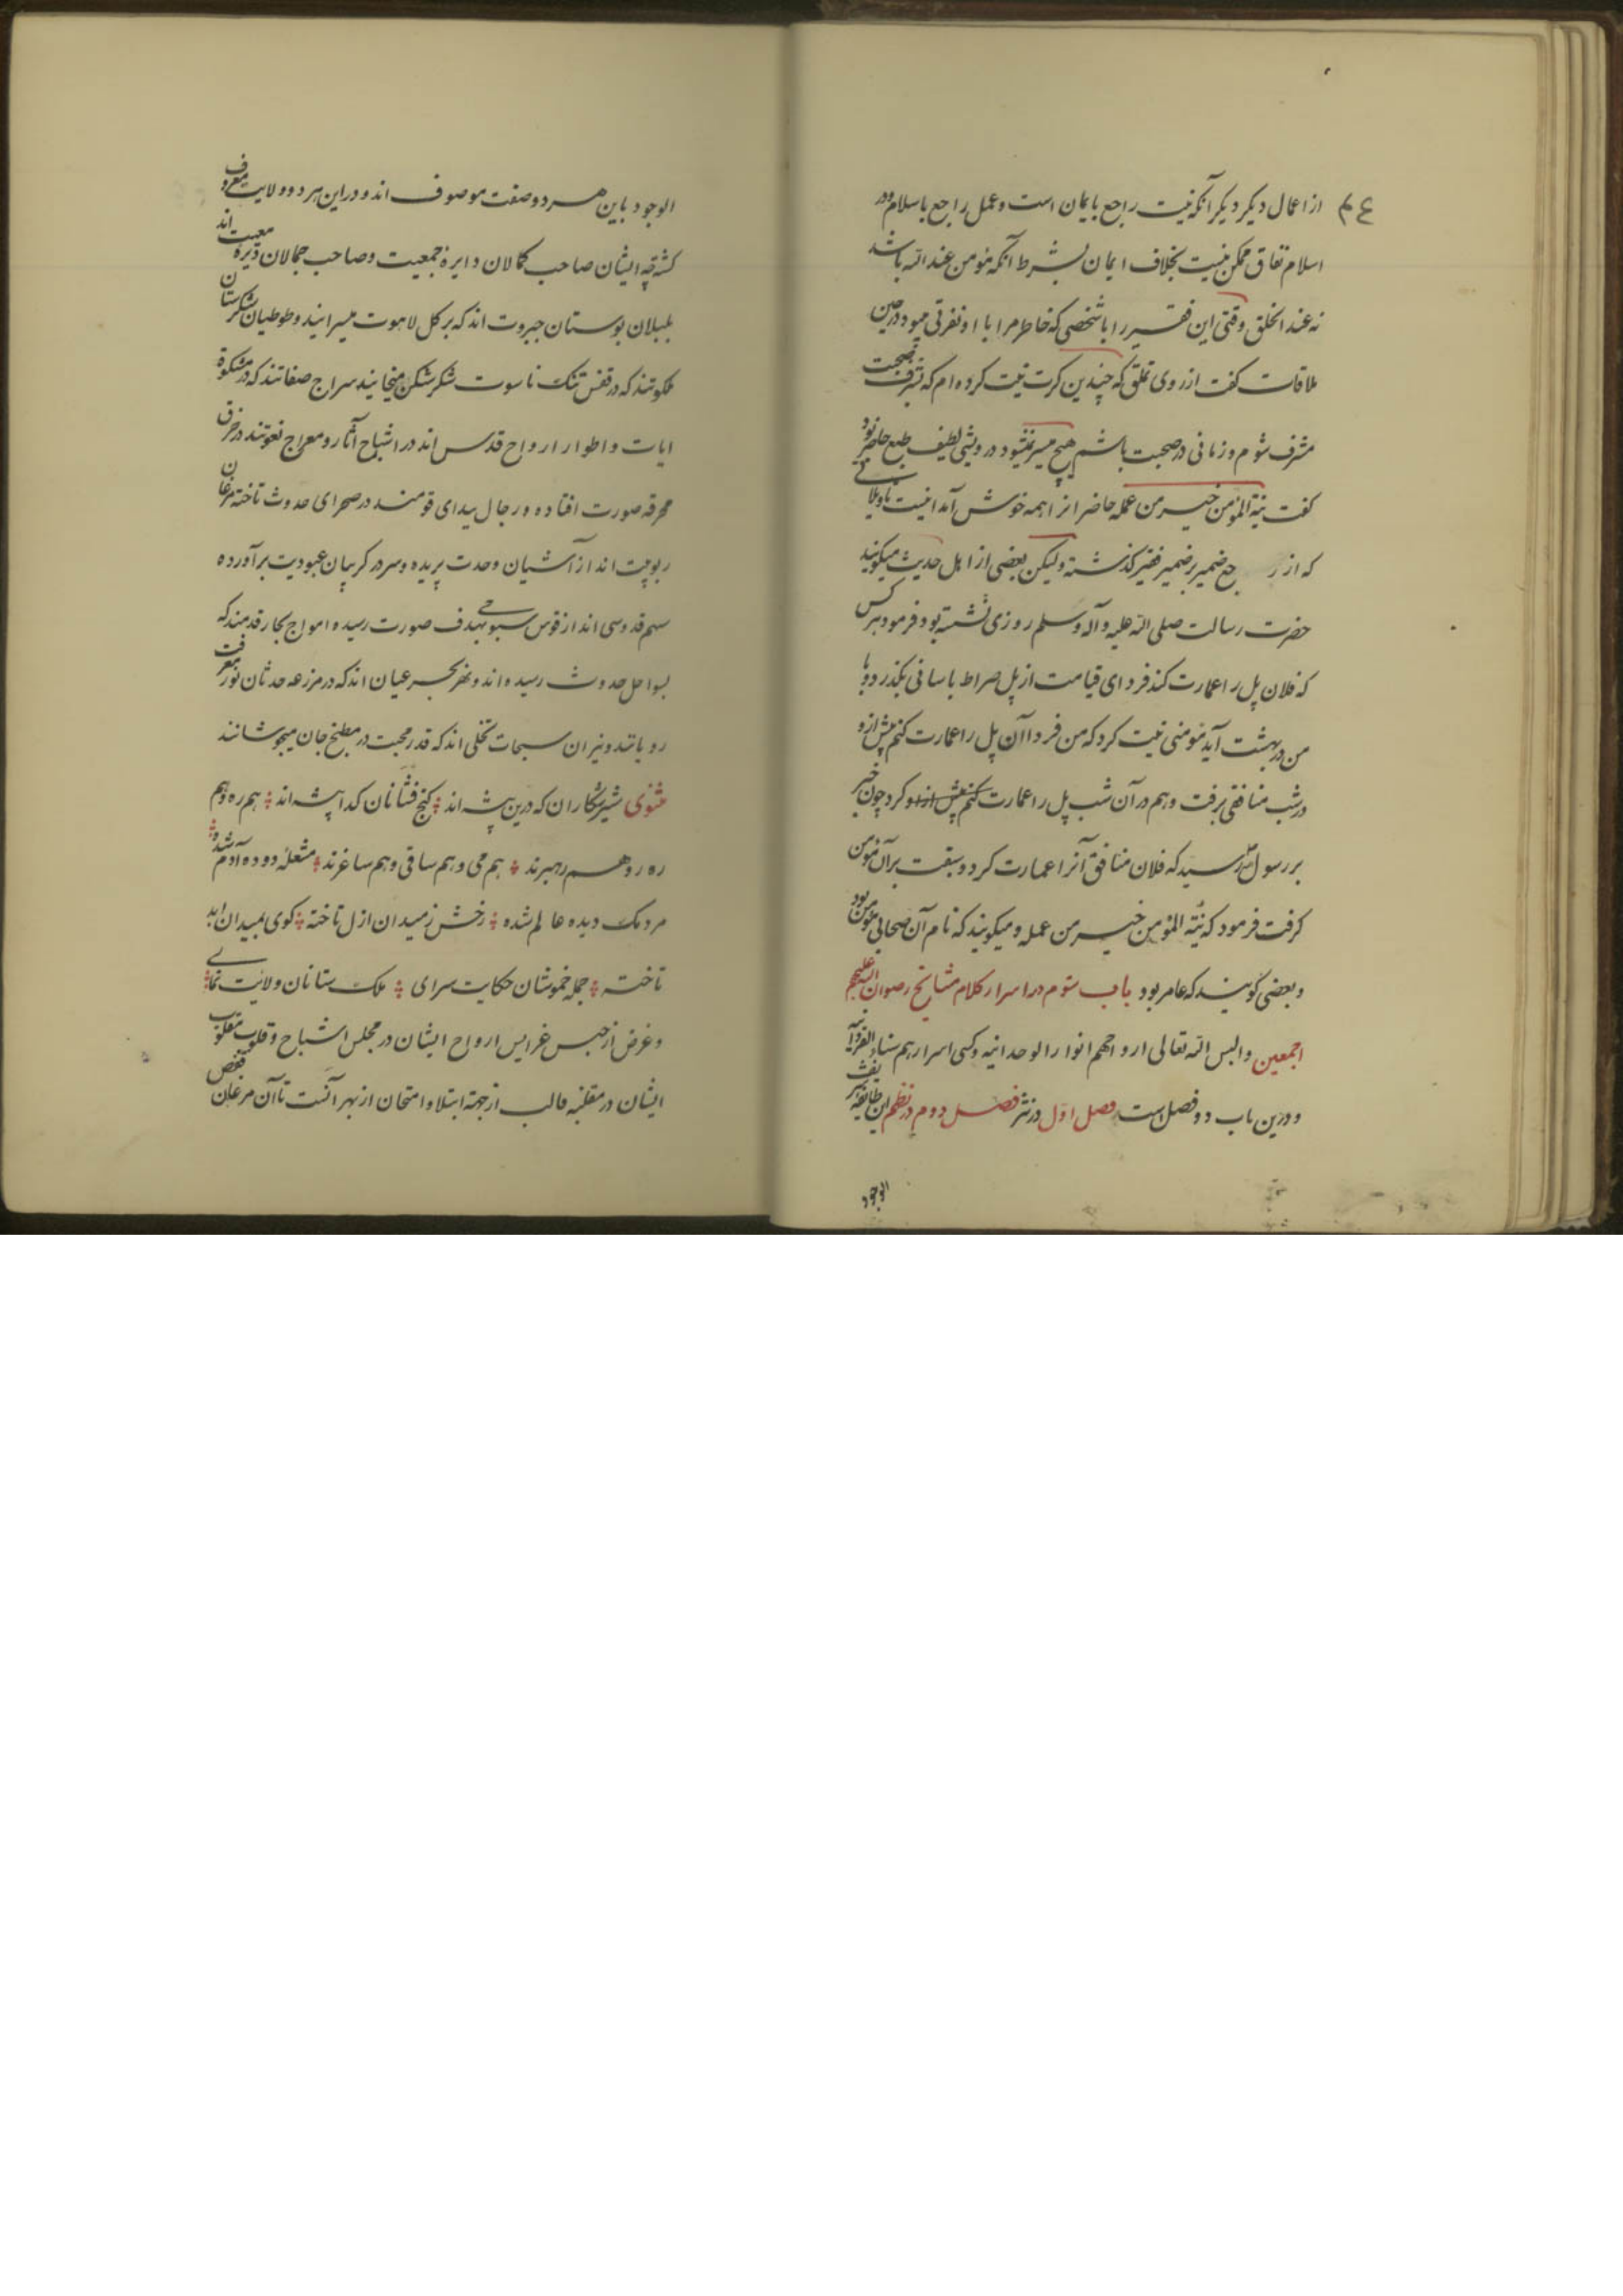 از اعمال دیکر دیکر آنکه نیت راجع بایمان است و عمل راجع باسلام و در
اسلام نفاق ممکن نیست بخلاف ایمان بشرط آنکه مؤمن عند الله باشد
نه عند الخلق وقتی این فقیر را با شخصی که خاطر مرا با او نفرتی میبود در حین
ملاقات کفت از روی تملق که چندین کرت نیت کرده ام که بشرف صحبت
مشرف شوم و زمانی در صحبت باشم هیچ میسر نمیشود درویشی لطیف طبع حاضر بود
کفت نیة المؤمن خیر من عمله حاضرانرا همه خوش آمد اینست تاویلاتی
که از ر جع ضمیر بر ضمیر فقیر کذشته ولیکن بعضی از اهل حدیث میکویند
حضرت رسالت صلی الله علیه وآله وسلم روزی نشسته بود فرمود هر کس
که فلان پل را عمارت کند فردای قیامت از پل صراط باسانی بکذرد و با
من در بهشت آید مؤمنی نیت کرد که من فردا آن پل را عمارت کنم پیش ازو
در شب منافقی برفت و هم در آن شب پل را عمارت کنم پیش ازو کرد چون خبر
بر رسول رسید که فلان منافق آنرا عمارت کرد و سبقت بر آن مؤمن
کرفت فرمود که نیة المؤمن خیر من عمله و میکویند که نام آن صحابی مؤمن بود
و بعضی کویند که عامر بود باب سوم در اسرار کلام مشایخ رضوان الله علیهم
اجمعین والبس الله تعالی ارواحهم انوار الوحدانیه وکسی اسرارهم سناء الفردانیة
و درین باب دو فصل است فصل اول در نثر فصل دوم در نظم این طائفه
الوجود
الوجود باین هر دو صفت موصوف اند و در این هر دو ولایت معروف
کشته ایشان صاحب کمالان دایرۀ جمعیت و صاحب جمالان دیرۀ معیت اند
بلبلان بوستان جبروت اند که بر کل لاهوت میسرایند و طوطیان شکرستان
ملکوتند که در قفس تنک ناسوت شکر شکن میخایند سراج صفاتند که در مشکوة
ایات و اطوار ارواح قدس اند در اشباح آثار و معراج نعوتند در خرق
محرقه صورت افتاده و رجال بیدای قومند در صحرای حدوث تاخته مرغان
ربوبیت اند از آشیان وحدت پریده و سر در کریبان عبودیت برآورده
سهم قدوسی اند از قوس سبوحی بهدف صورت رسیده امواج بحار قدمند که
بسواحل حدوث رسیده اند و نهر بحر عیان اند که در مزرعه حدثان نور معرفت
رویانند و نیران سبحات تجلی اند که قدر محبت در مطبخ جان میجوشانند
مثنوی شیر شکاران که درین بیشه اند کنج فشانان کدا پیشه اند هم ره و هم
ره رو و هم رهبرند هم می و هم ساقی و هم ساغرند مشعلۀ دوده آدم شده
مردمک دیده عالم شده رخش ز میدان ازل تاخته کوی بمیدان ابد
تاخته جمله خموشان حکایت سرای ملک ستانان ولایت نمای
و غرض از حبس عرایس ارواح ایشان در مجلس اشباح و قلوب مقلوب
ایشان در مقلبه قالب از جهة ابتلا و امتحان از بهر آنست تا آن مرغان قفص